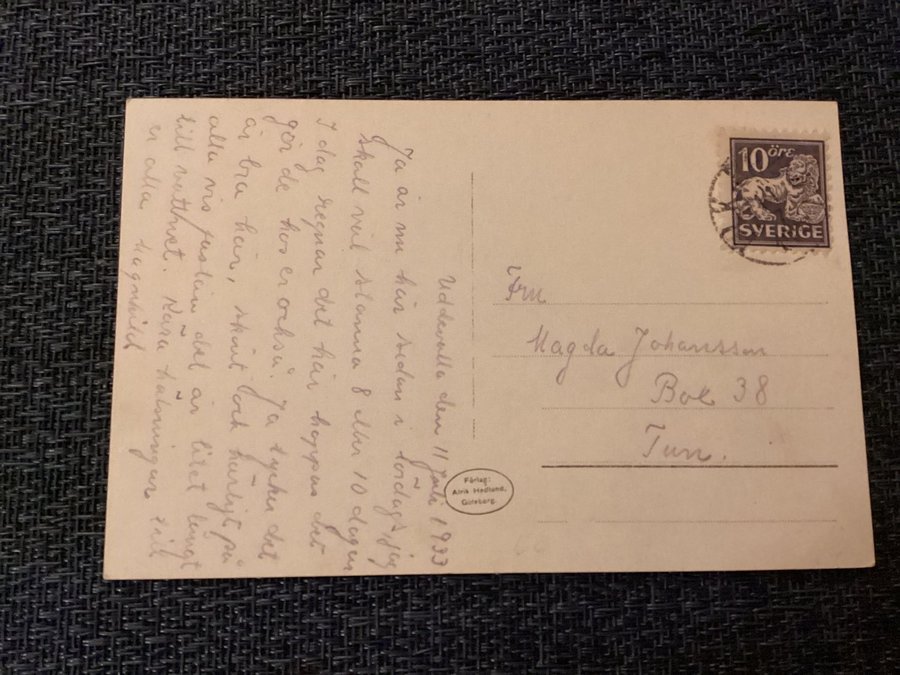 Uddevalla den 11 juli 1933
Ja är nu här sedan i lördags, jag
skall väl stanna 8 eller 10 dagar
I dag regnar det här hoppas det
gör de hos er också. Ja tycker det
är bra här, skönt och härligt på
alla vis fastän det är litet långt
till vattnet. Kära hälsningar till
er alla Ragnhild
10 öre
SVERIGE
Fru
Magda Johansson
Box 38
Tun.
Förlag:
Alrik Hedlund,
Göteborg.